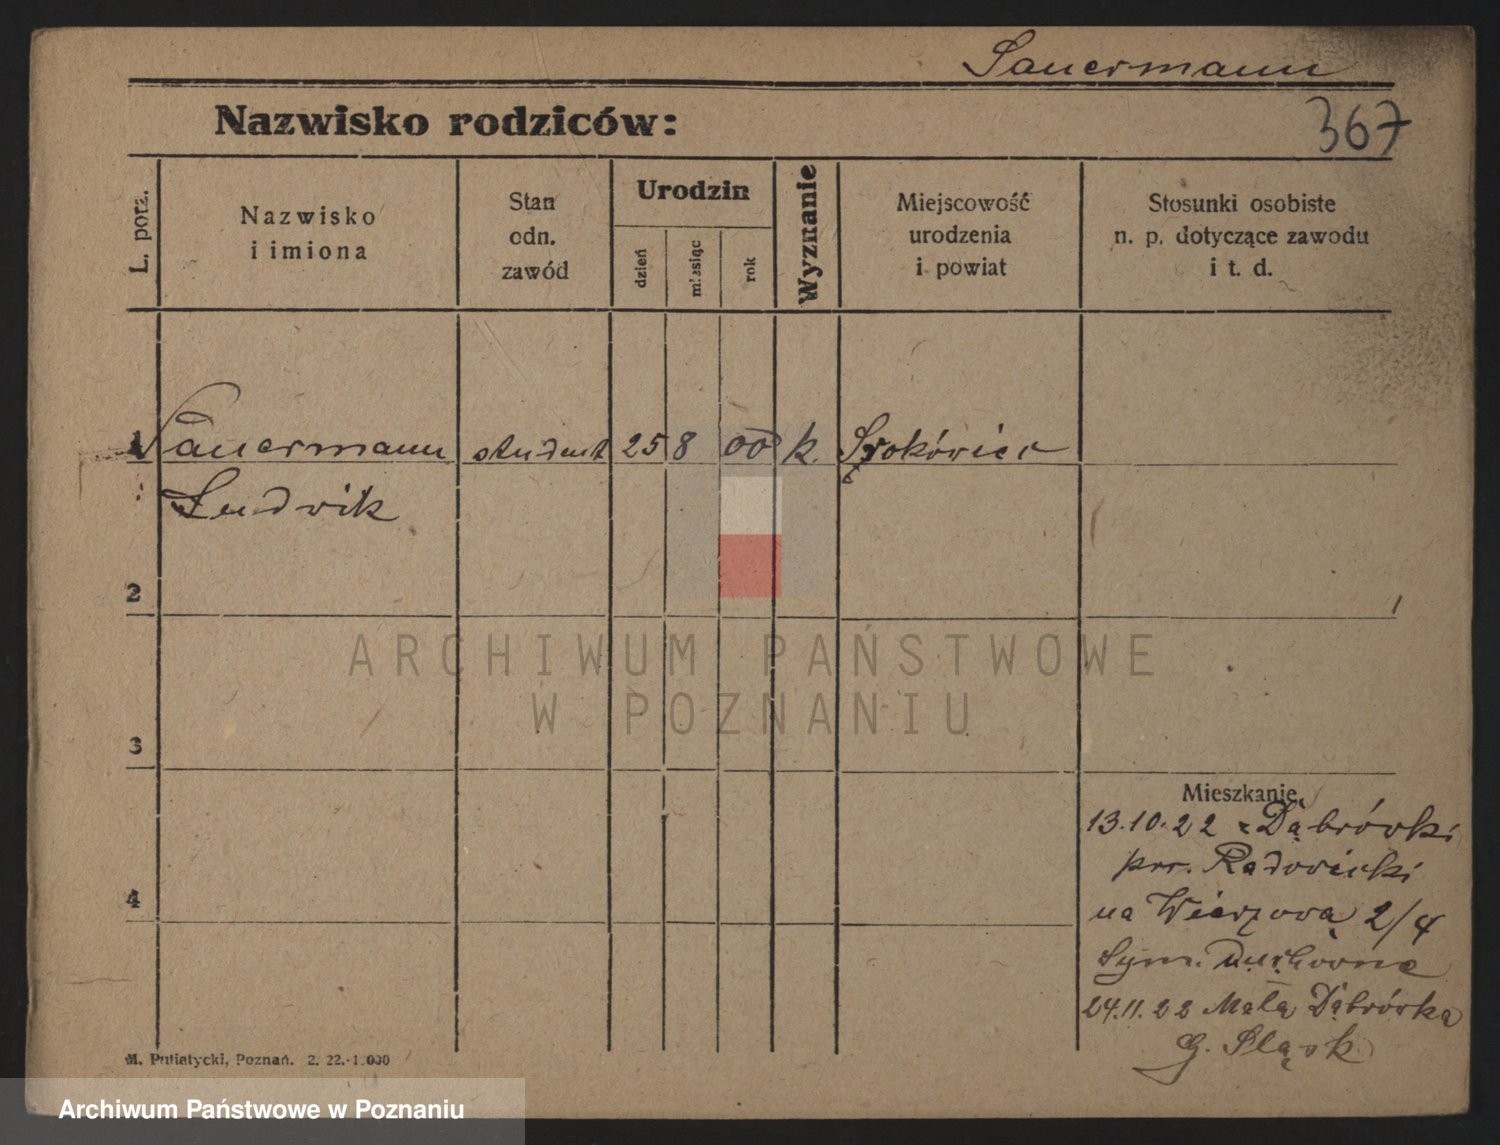 Sauermann
Nazwisko rodziców:
367
L. porz.
Nazwisko
i imiona
Stan
odn.
zawód
Urodzin
dzień
miesiąc
rok
Wyznanie
Miejscowość
urodzenia
i powiat
Stosunki osobiste
n. p. dotyczące zawodu
i t. d.
1 Sauermann student 25 8 00 k.
Ludwik
2
ARCHIWUM PAŃSTWOWE
W POZNANIU
3
Mieszkanie
13.10.22 z Dąbrówki
pow. Radowicki
na Wieżową 2/4
4
duchowne
24.11.22 Mała Dąbrówka
G. Śląsk
M. Putiatycki, Poznań. 2. 22.-1.000
Archiwum Państwowe w Poznaniu